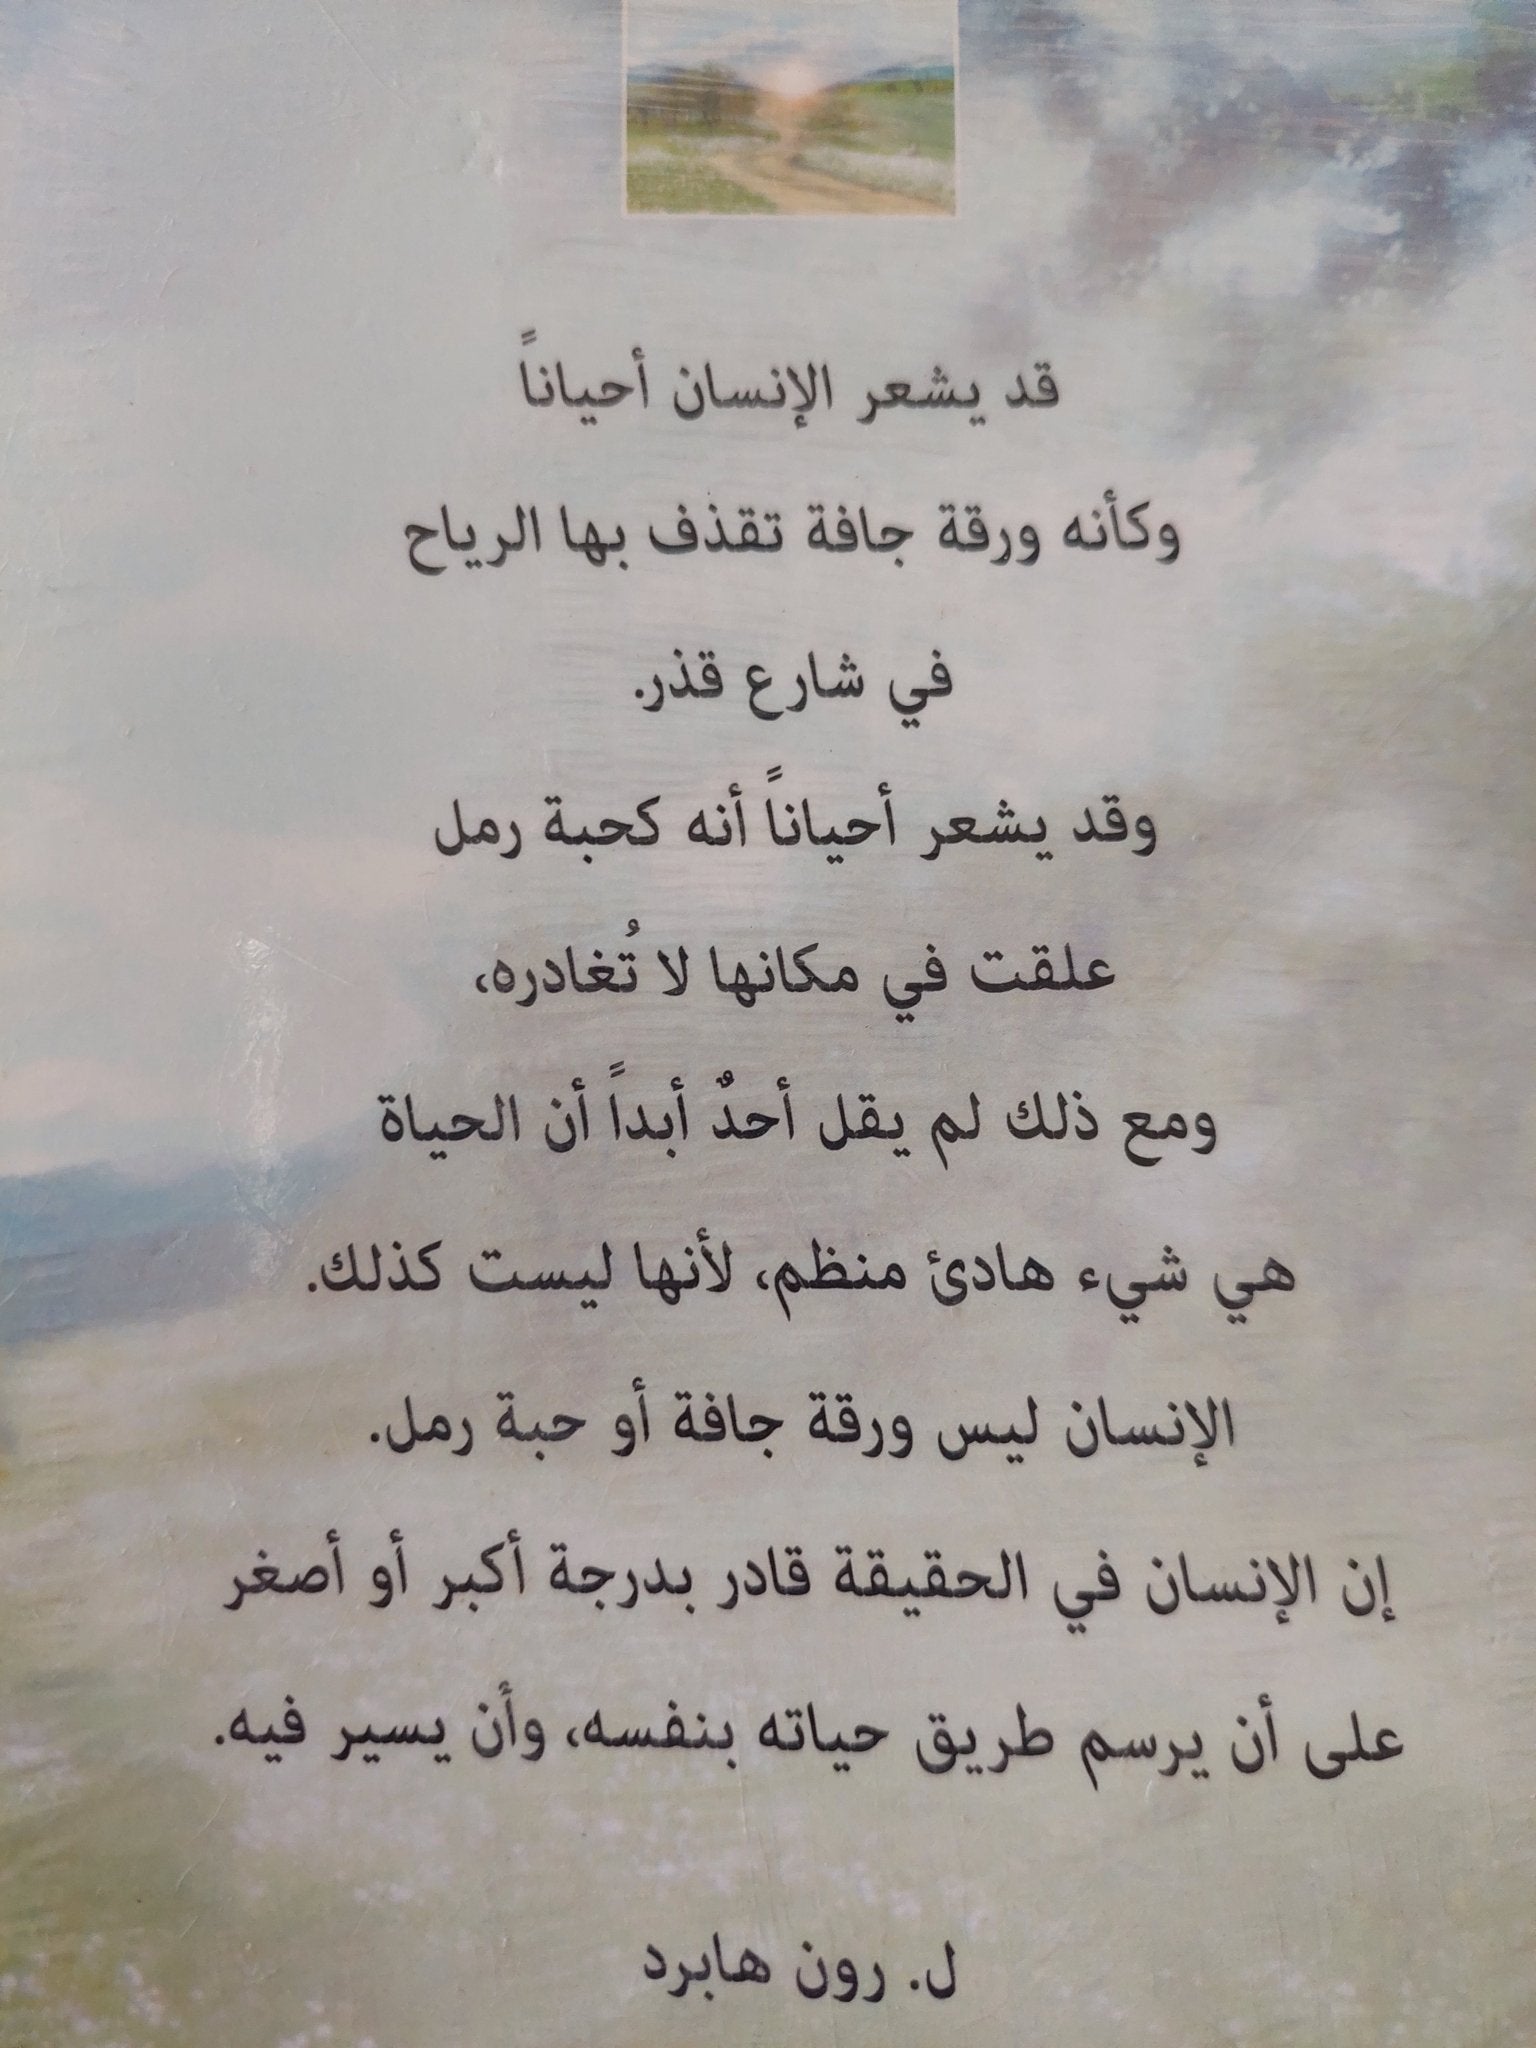 قد يشعر الإنسان أحياناً
وكأنه ورقة جافة تقذف بها الرياح
في شارع قذر.
وقد يشعر أحياناً أنه كحبة رمل
علقت في مكانها لا تُغادره،
ومع ذلك لم يقل أحدٌ أبداً أن الحياة
هي شيء هادئ منظم، لأنها ليست كذلك.
الإنسان ليس ورقة جافة أو حبة رمل.
إن الإنسان في الحقيقة قادر بدرجة أكبر أو أصغر
على أن يرسم طريق حياته بنفسه، وأن يسير فيه.
ل. رون هابرد